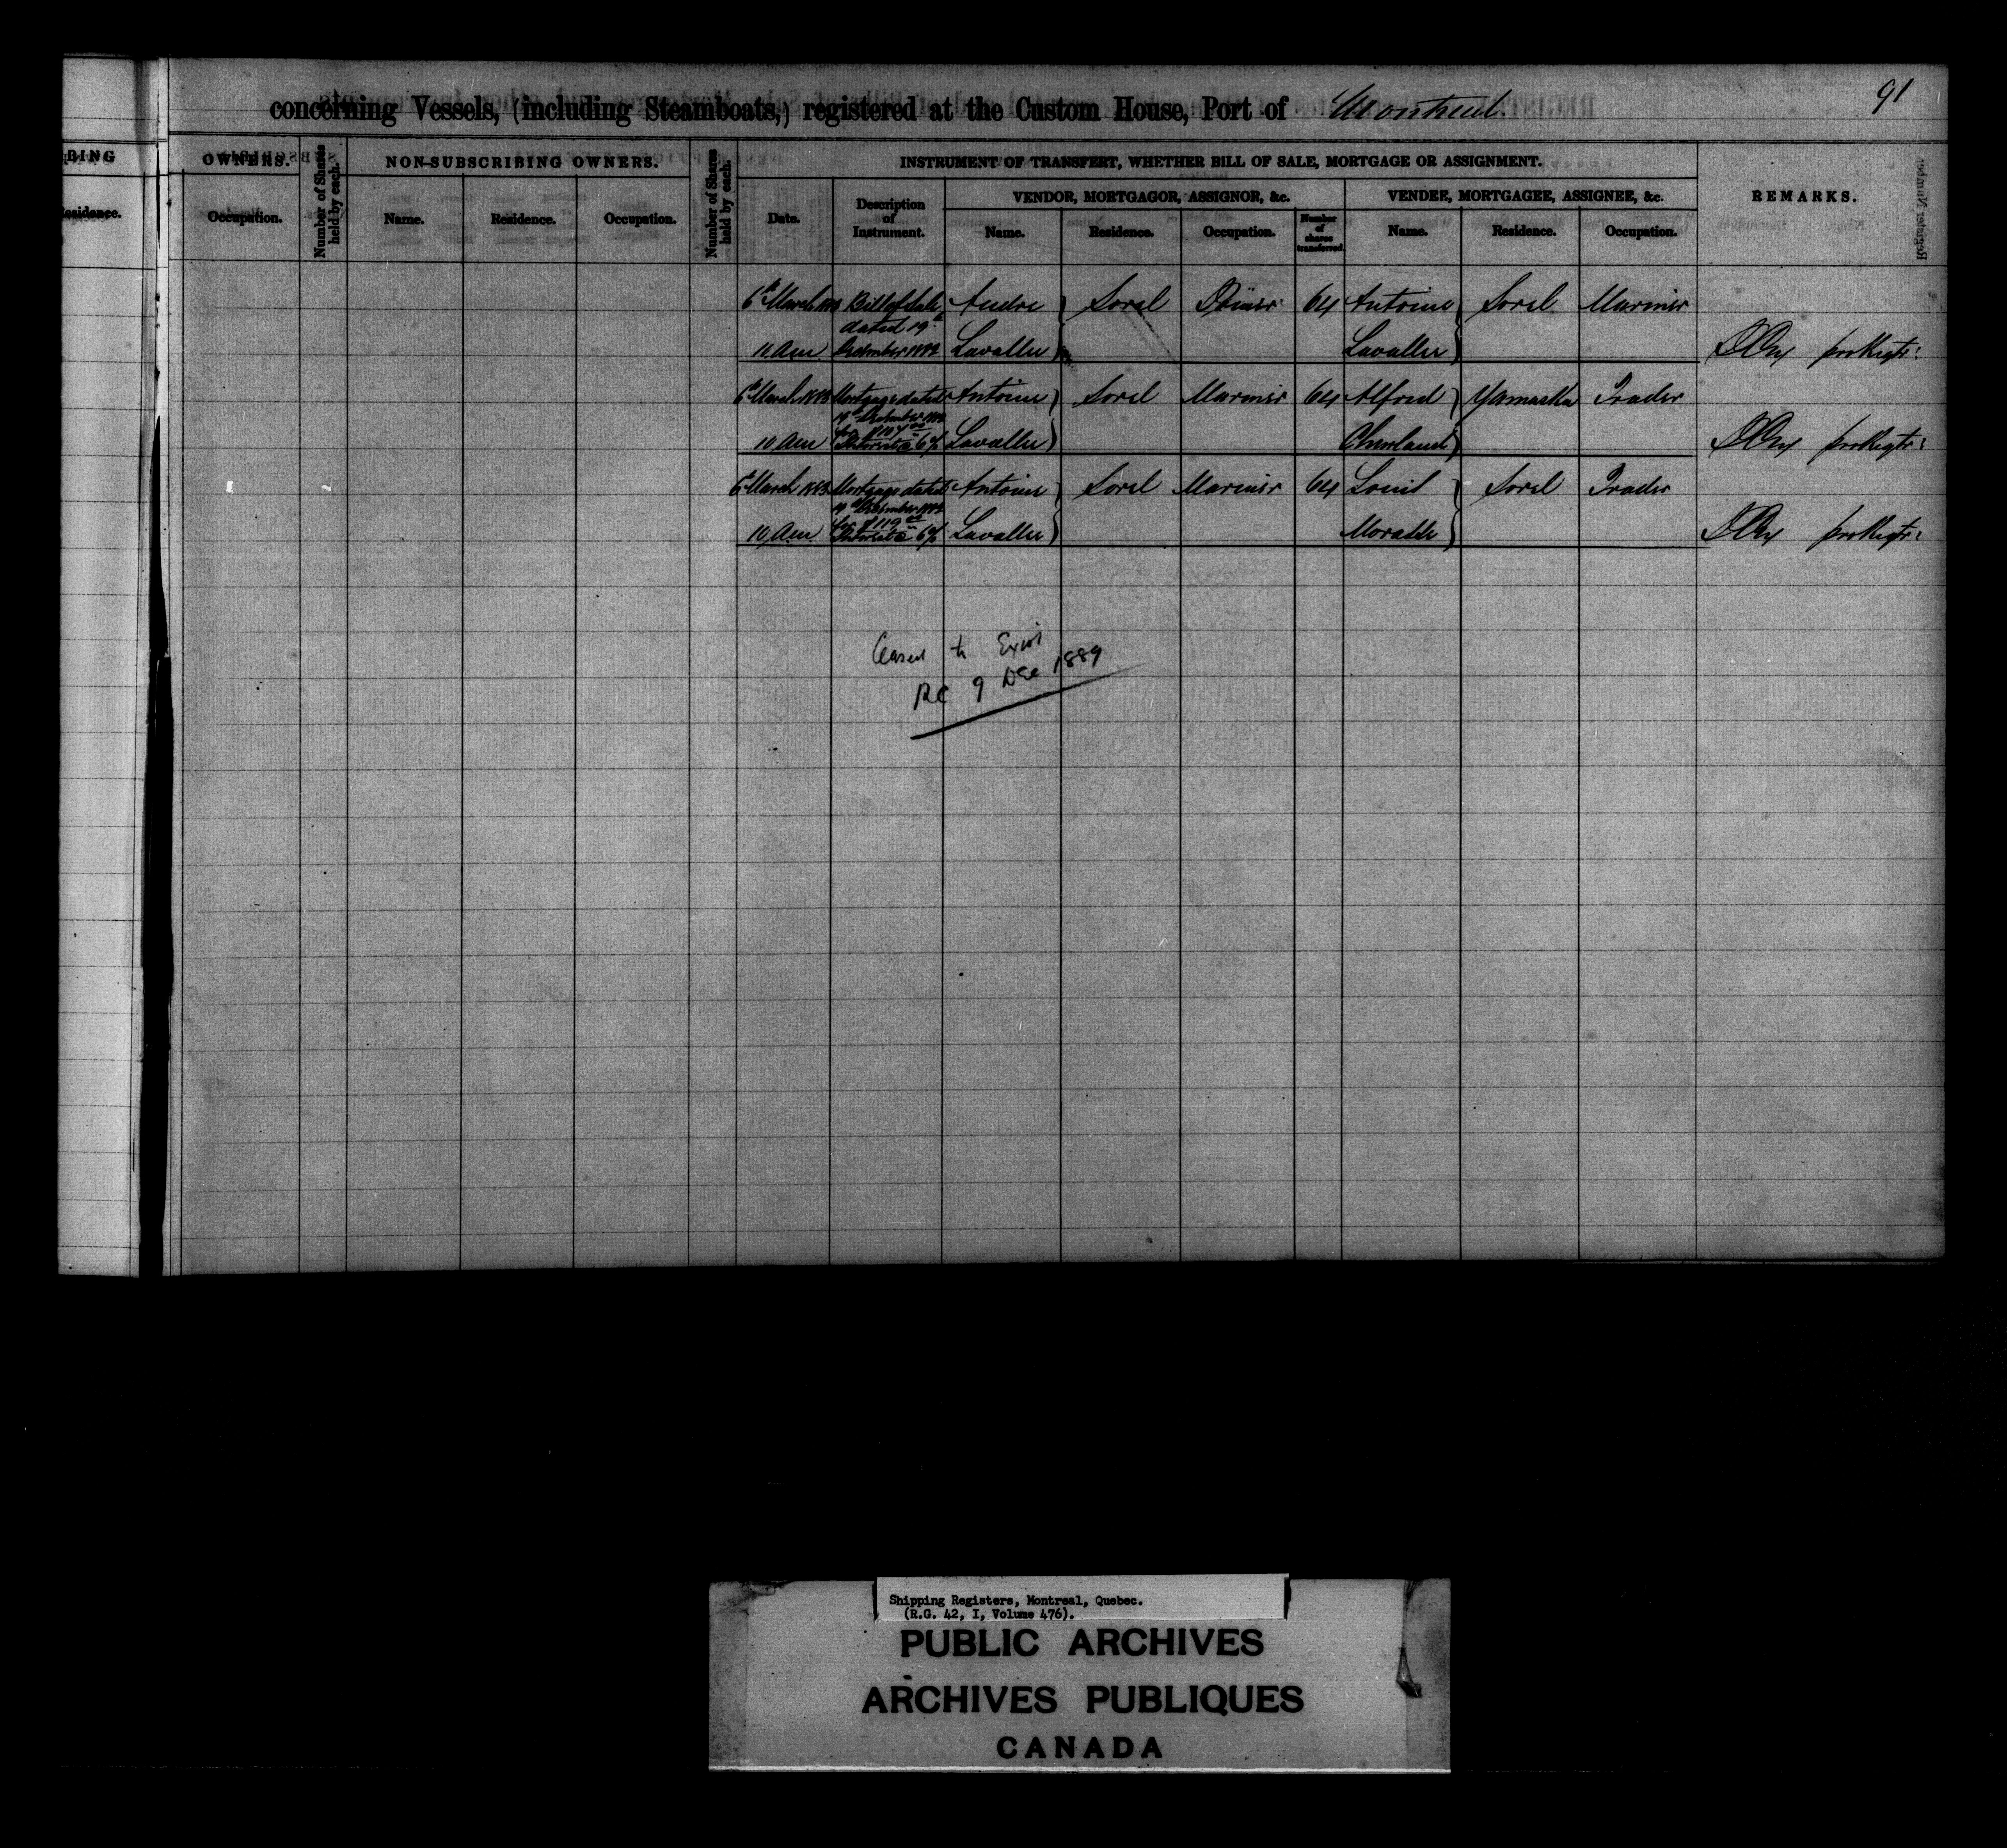 91
concerning Vessels, (including Steamboats,) registered at the Custom House, Port of Montreal.
BING
OWNERS.
Number of Shares held by each.
NON-SUBSCRIBING OWNERS.
Number of Shares held by each.
INSTRUMENT OF TRANSFERT, WHETHER BILL OF SALE, MORTGAGE OR ASSIGNMENT.
REMARKS.
VENDOR, MORTGAGOR, ASSIGNOR, &c.
VENDEE, MORTGAGEE, ASSIGNEE, &c.
esidence.
Occupation.
Name.
Residence.
Occupation.
Date.
Description of Instrument.
Name.
Residence.
Occupation.
Number of shares transferred
Name.
Residence.
Occupation.
6th March Bill of Sale Andre Sorel 64 Antoine Sorel Mariner
dated 19th
10 am December 1882 Lavallee Lavallee pro Regtr:
6th March 1883 Mortgage dated Antoine Sorel Mariner 64 Alfred Yamaska Trader
19th December 1882
10 am Interest @ 6% Lavallee pro Regtr:
6th March 1883 Mortgage dated Antoine Sorel Mariner 64 Louis Sorel Trader
19th December 1882
for $119
10 am Interest @ 6% Lavallee Morasse pro Regtr:
Ceased to Exist
RC 9 Dec 1889
Shipping Registers, Montreal, Quebec.
(R.G. 42, I, Volume 476).
PUBLIC ARCHIVES
ARCHIVES PUBLIQUES
CANADA